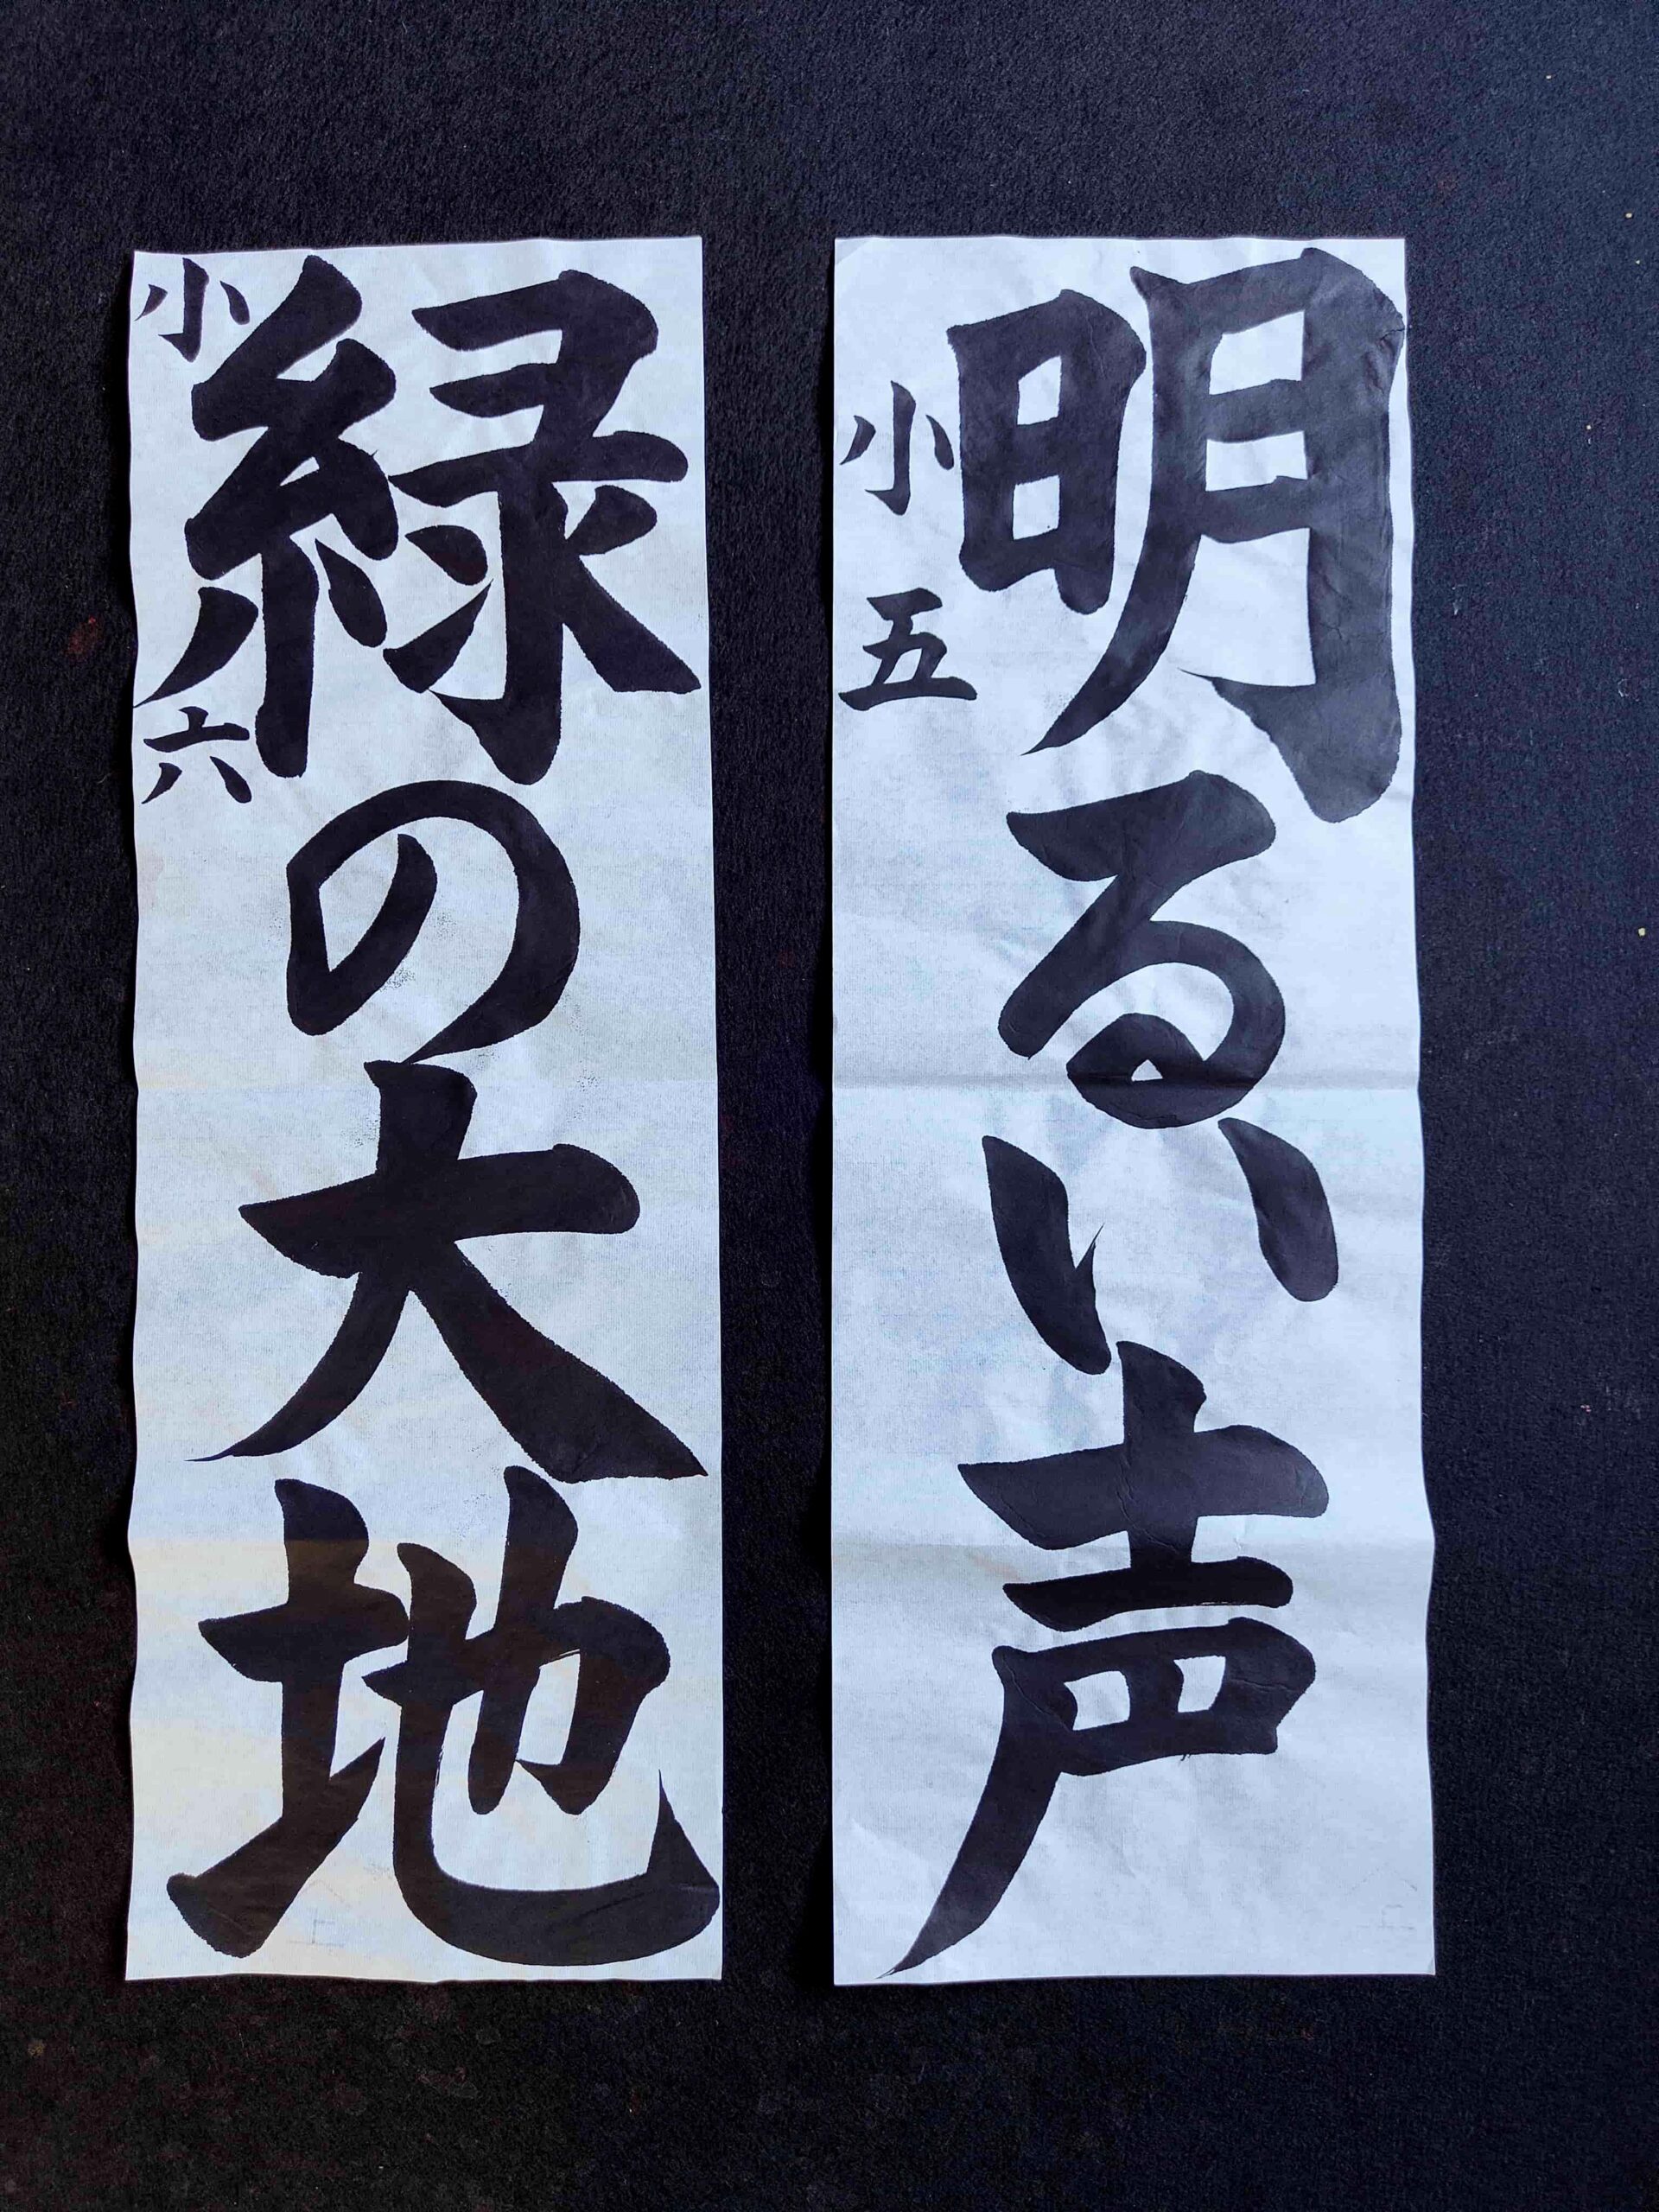 明るい声
小五
緑の大地
小六